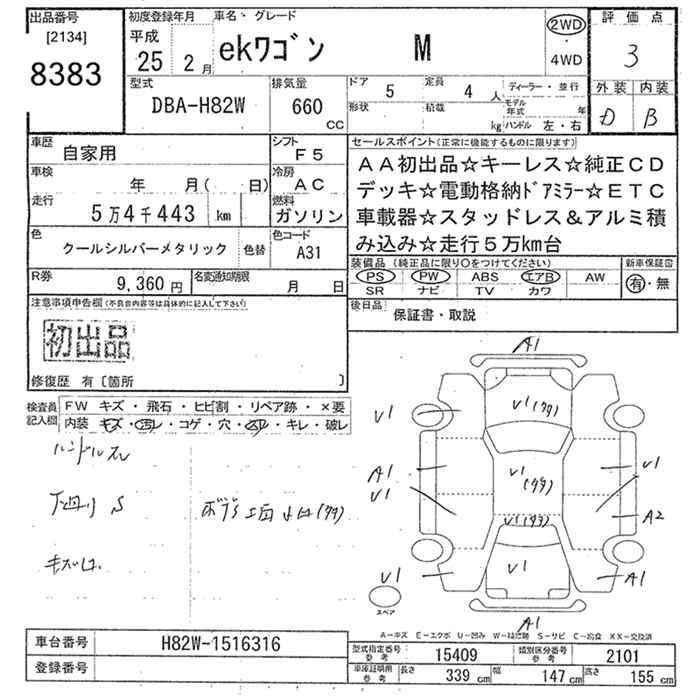 出品番号
[2134]
8383
初度登録年月
平成
25 2月
車名、グレード
ekワゴン M
2WD
・
4WD
評価点
3
外装 内装
D B
型式
DBA-H82W
排気量
660
CC
ドア 5
定員 4 人
ディーラー・並行
形状
積載
kg
モデル年式 年
ハンドル 左・右
車歴
自家用
シフト
F5
車検
年 月( 日)
冷房
AC
走行
5万4千443 km
燃料
ガソリン
色
クールシルバーメタリック
色替
色コード
A31
R券
9,360円
名変通知期限
月 日
セールスポイント(正常に機能するものに限ります)
AA初出品☆キーレス☆純正CD
デッキ☆電動格納ドアミラー☆ETC
車載器☆スタッドレス&アルミ積
み込み☆走行5万km台
装備品(純正品に限り○をつけてください)
新車保証書
PS PW ABS エアB AW
SR ナビ TV カワ
有・無
後日品
保証書・取説
注意事項申告欄(不具合内容等は具体的に記入して下さい)
初出品
修復歴 有〔箇所 〕
検査員
記入欄
FW キズ・飛石・ヒビ割・リペア跡・×要
内装 キズ・汚レ・コゲ・穴・スレ・キレ・破レ
ハンドルスレ
下廻りS
キズ
A1
V1
V1(タタ)
A1
V1
V1(タタ)
V1
A2
V1(タタ)
V1
V1
A1
スペア
A1
A-キズ E-エクボ U-凹み S-サビ C-腐食 XX-交換済
車台番号
H82W-1516316
登録番号
型式指定番号
参考
15409
類別区分番号
参考
2101
車庫証明用
参考
長さ 339 cm
幅 147 cm
高さ 155 cm